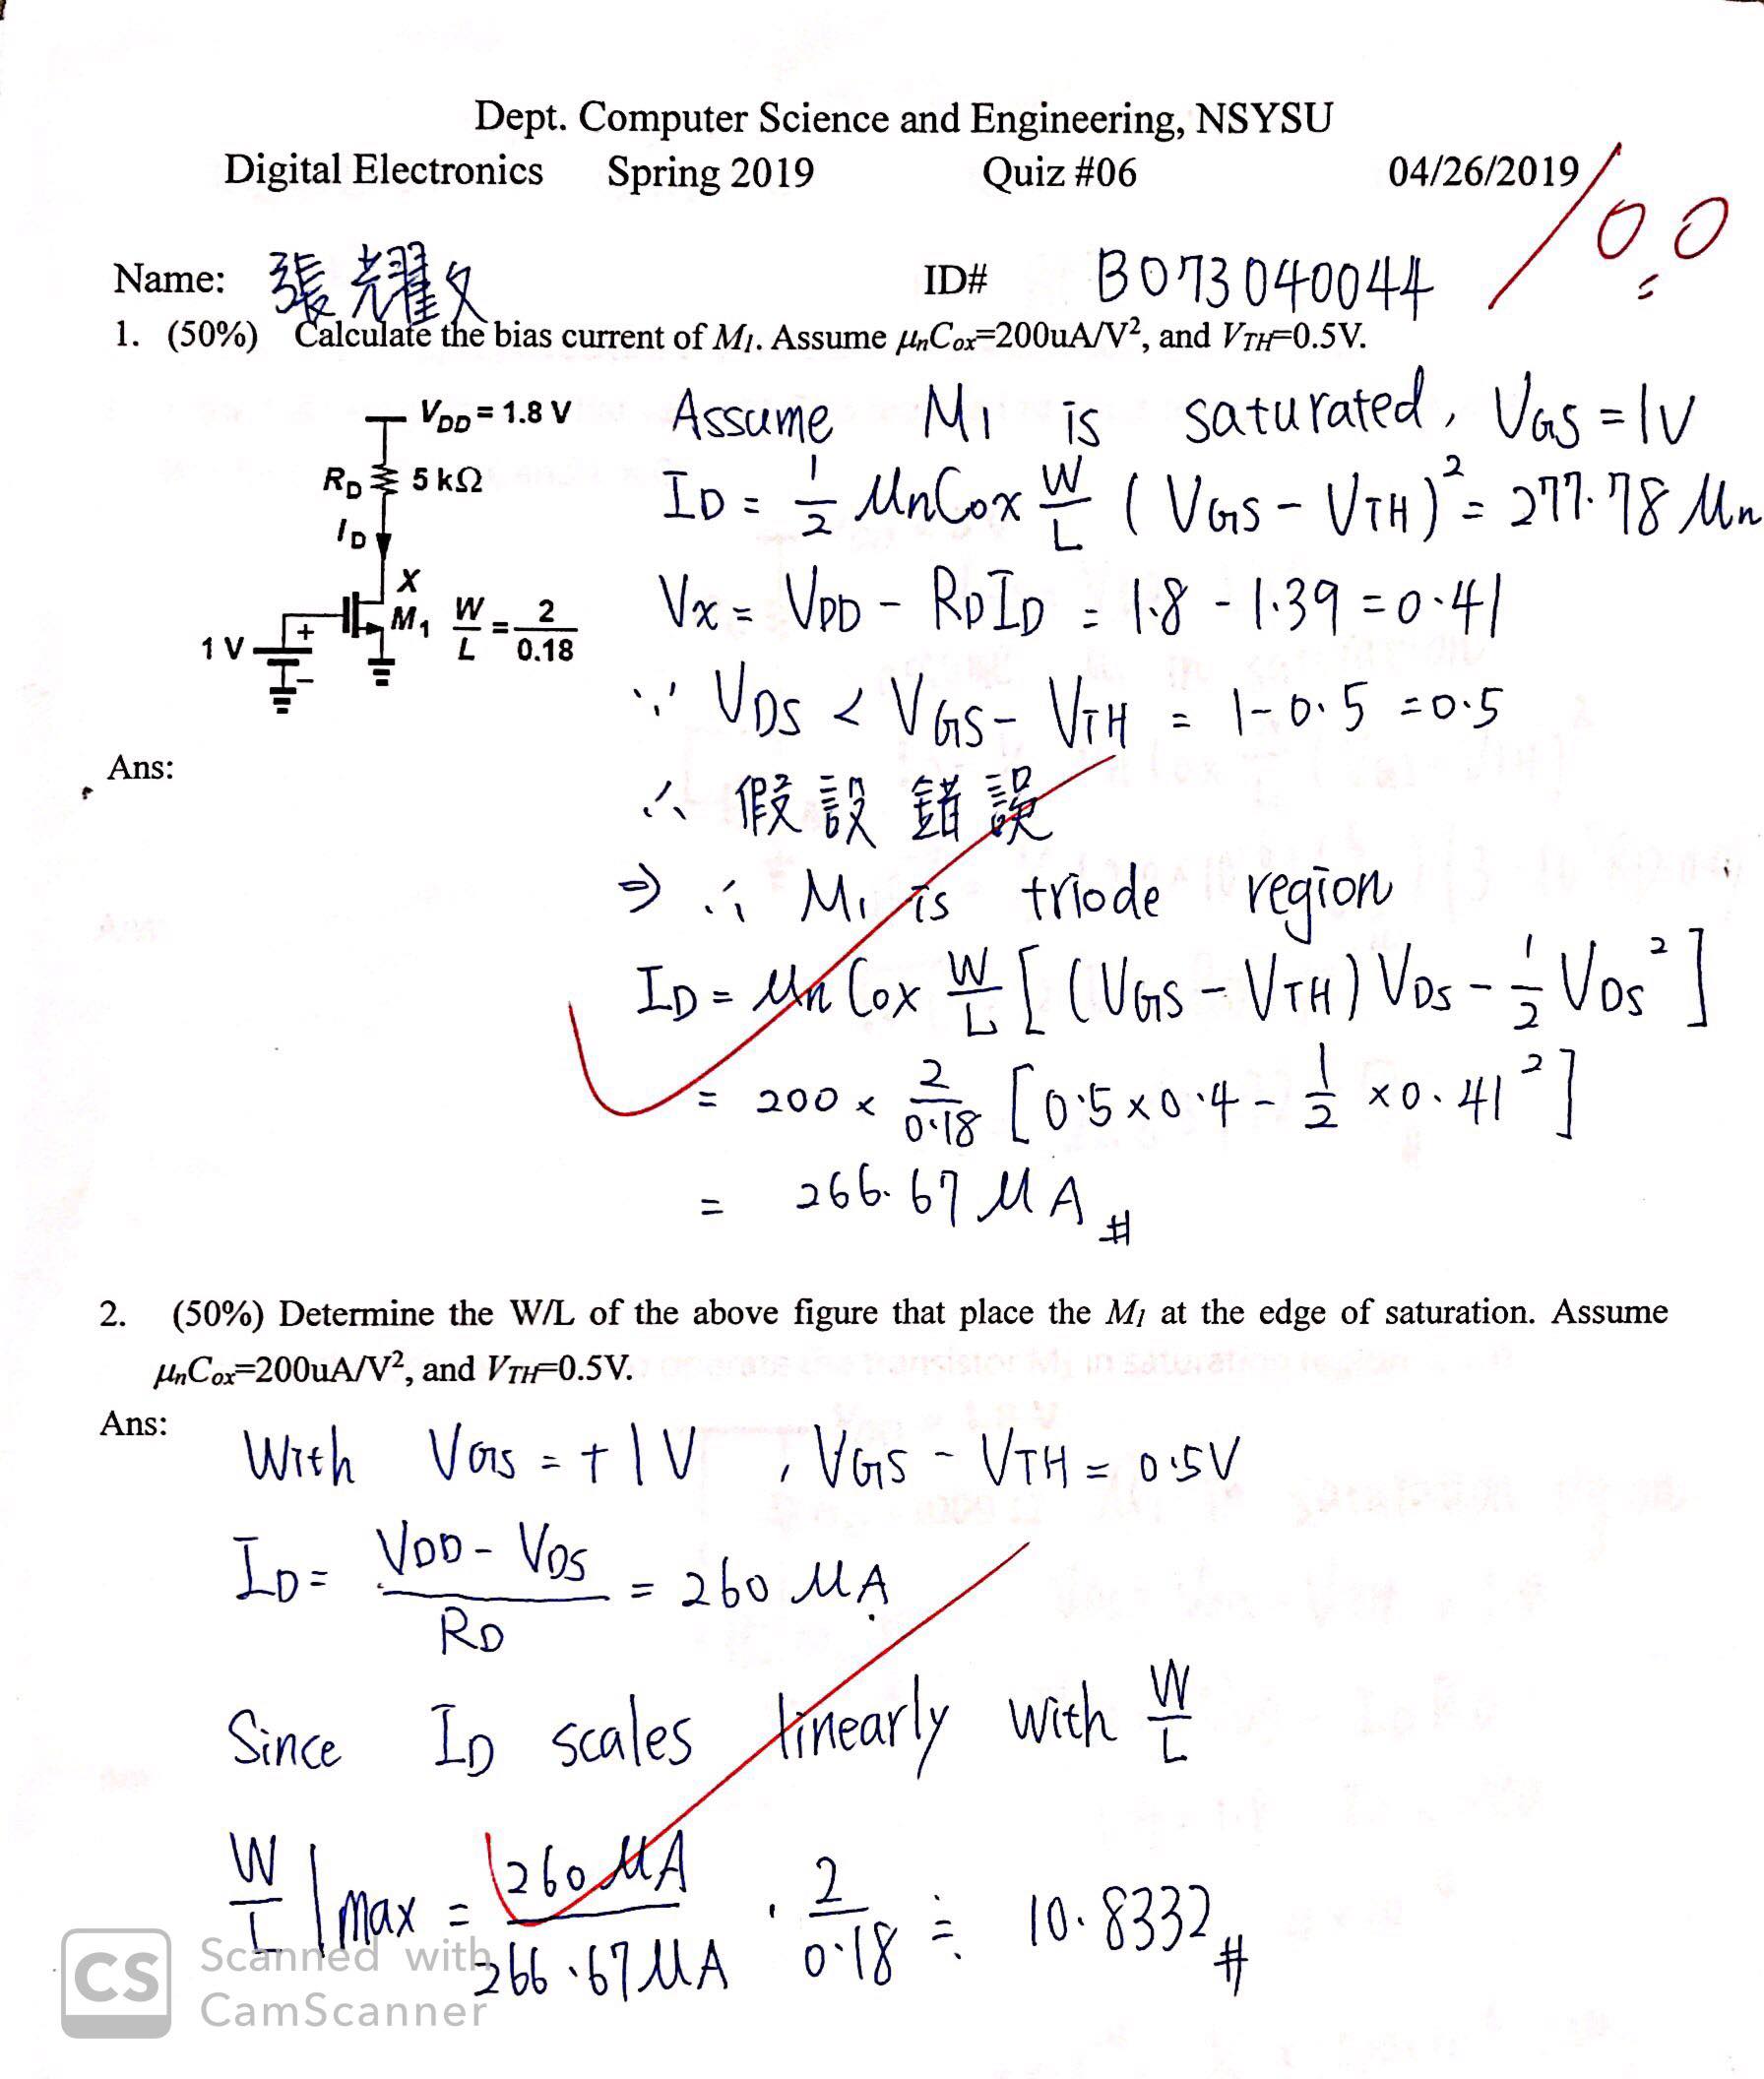 Dept. Computer Science and Engineering, NSYSU
Digital Electronics Spring 2019 Quiz #06 04/26/2019
100
Name: 張耀文 ID# B073040044
1. (50%) Calculate the bias current of M₁. Assume μₙCₒₓ=200uA/V², and V_TH=0.5V.
V_DD = 1.8 V
R_D 5 kΩ
I_D
X
M₁ W/L = 2/0.18
1 V
+
−
Ans:
Assume M1 is saturated, VGS = 1V
ID = 1/2 μnCox W/L (VGS - VTH)² = 277.78 μn
Vx = VDD - RDID = 1.8 - 1.39 = 0.41
∵ VDS < VGS - VTH = 1-0.5 = 0.5
∴ 假設錯誤
⇒ ∴ M1 is triode region
ID = μnCox W/L [(VGS - VTH) VDS - 1/2 VDS²]
= 200 × 2/0.18 [0.5×0.4 - 1/2 ×0.41²]
= 266.67 μA #
2. (50%) Determine the W/L of the above figure that place the M₁ at the edge of saturation. Assume
μₙCₒₓ=200uA/V², and V_TH=0.5V.
Ans:
With VGS = +1V , VGS - VTH = 0.5V
ID = (VDD - VDS)/RD = 260 μA
Since ID scales linearly with W/L
W/L |max = 260μA/266.67μA · 2/0.18 ≒ 10.8332 #
CS Scanned with
CamScanner